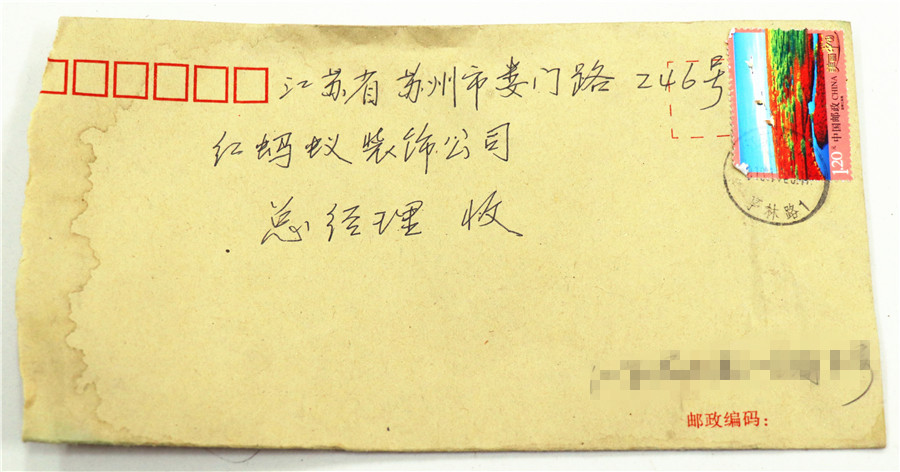 江苏省苏州市娄门路246号
红蚂蚁装饰公司
总经理 收
中国邮政 CHINA
1.20
林路1
邮政编码：